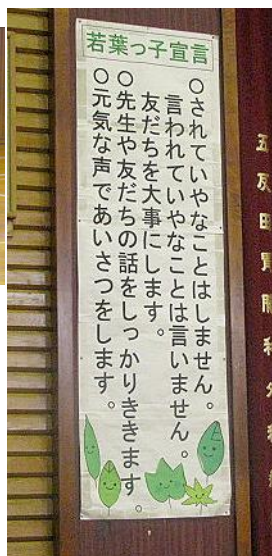 若葉っ子宣言
○されていやなことはしません。
言われていやなことは言いません。
友だちを大事にします。
○先生や友だちの話をしっかりききます。
○元気な声であいさつをします。